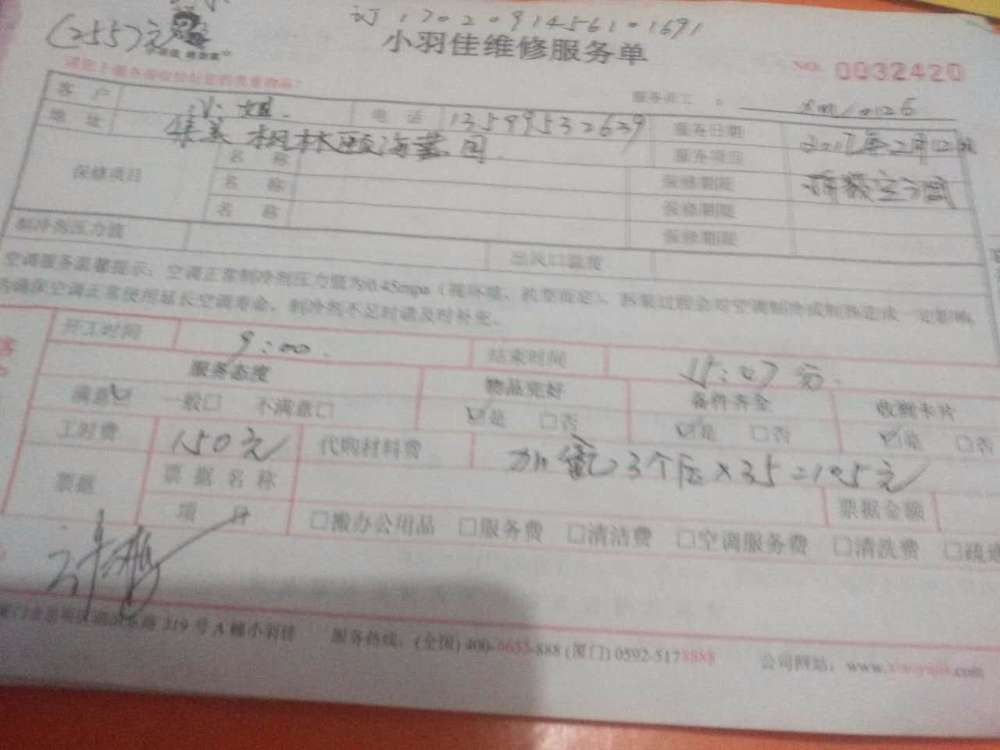 订1702091456101691
(255)元
小羽佳维修服务单
NO. 0032420
服务员工： xm/0126
客户 小姐 电话 13599532639 服务日期 2017年2月12日
地址 集美枫林 服务项目
保修项目 名称 保修期限
名称 保修期限
名称 保修期限
制冷剂压力值 出风口温度
空调服务温馨提示：空调正常制冷剂压力值为0.45mpa（视环境、机型而定），拆装过程会对空调制冷或制热造成一定影响
为确保空调正常使用延长空调寿命，制冷剂不足时请及时补充。
开工时间 9：00 结束时间 11：07分
服务态度 物品完好 备件齐全 收到卡片
满意☑ 一般□ 不满意□ ☑是 □否 ☑是 □否 ☑是 □否
工时费 150元 代购材料费 加氟3个压×35=105元
票据 票据名称 票据金额
项目 □搬办公用品 □服务费 □清洁费 □空调服务费 □清洗费 □疏通
319号A幢小羽佳 服务热线：(全国) 400-6655-888 (厦门) 0592-5178888 公司网站：www.xiaoyujia.com